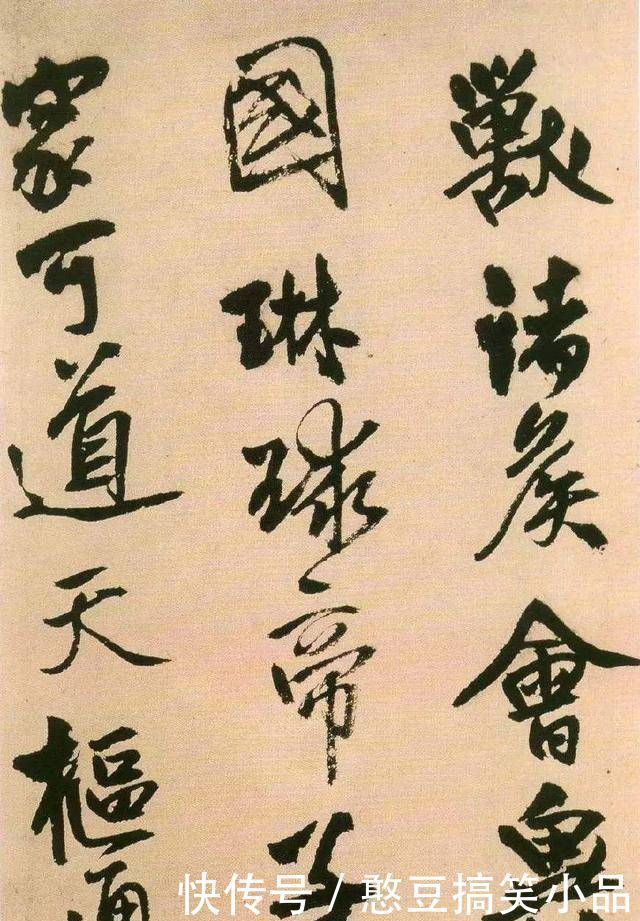 獸諸侯會魚
國琳球帝
家可道天樞通
快传号/憨豆搞笑小品